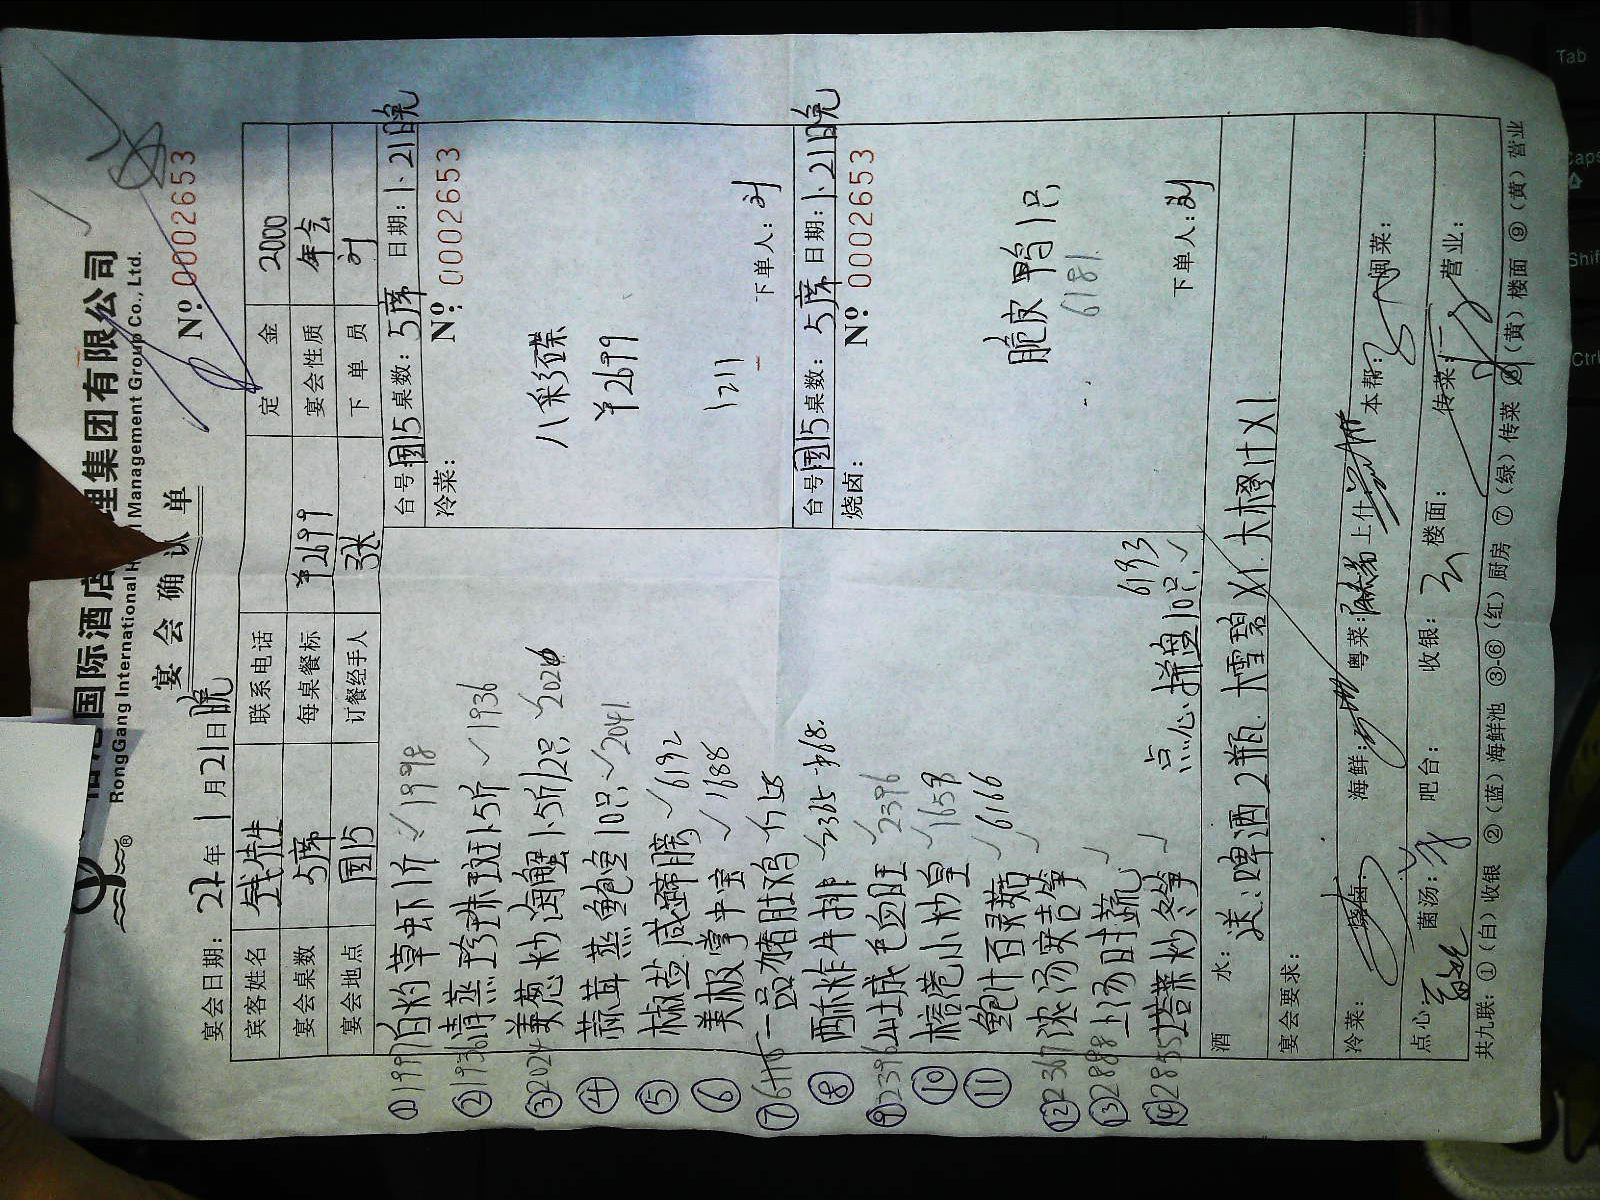 国际酒店 理集团有限公司
RongGang International Management Group Co., Ltd.
宴会确认单
№ 0002653
宴会日期: 22年1月21日晚
宾客姓名 钱先生 联系电话 定金 2000
宴会桌数 5席 每桌餐标 ¥2699 宴会性质 年会
宴会地点 园15 订餐经手人 下单员 刘
①1998 白灼草虾1斤 ✓1998
②1936 清蒸珍珠斑1.5斤 ✓1936
③2024 姜葱炒 蟹1.5斤/2只 ✓2024
④ 蒜茸蒸鲍鱼10只 ✓2041
⑤ 椒盐咸蹄膀 ✓6192
⑥ 美极掌中宝 ✓1688
⑦ 一品猪肚鸡
⑧ 酥炸牛排 ✓2365
⑨2396 山城毛血旺 ✓2396
⑩ 榕港小炒皇 ✓1659
⑪ 鲍汁百灵菇 ✓6166
⑫2367 浓汤 笋 ✓
⑬2888 上汤时蔬 ✓
⑭2885 塔菜炒冬笋 ✓
点心拼盘10只 ✓ 6193
台号 园15 桌数: 5席 日期: 1.21日晚
冷菜: № 0002653
八彩碟
¥2699
1211
下单人: 刘
台号 园15 桌数: 5席 日期: 1.21日晚
烧卤: № 0002653
脆皮鸭1只
6181
下单人: 刘
酒水: 送:啤酒2瓶.大雪碧X1.大橙汁X1
宴会要求:
冷菜: 烧卤: 海鲜: 粤菜: 上什: 本帮: 闽菜:
点心: 菌汤: 吧台: 收银: 楼面: 传菜: 营业:
共九联: ①(白)收银 ②(蓝)海鲜池 ③-⑥(红)厨房 ⑦(绿)传菜 ⑧(黄)楼面 ⑨(黄)营业
Tab
Caps
Shif
Ctrl